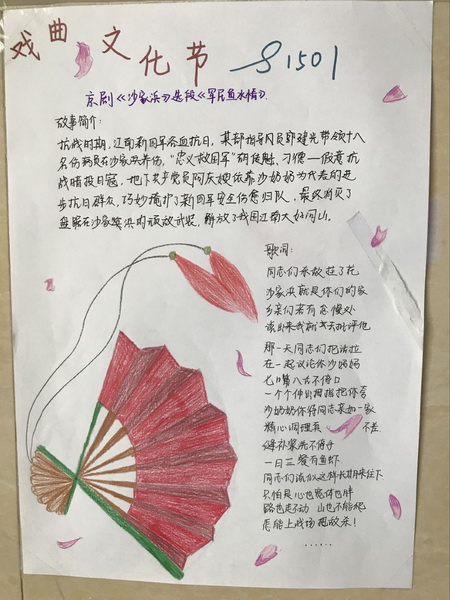 戏曲文化节 S1501
京剧《沙家浜》选段《军民鱼水情》
故事简介：
抗战时期，江南新四军浴血抗日，某部指导员郭建光带领十八
名伤病员在沙家浜养伤，"忠义救国军"胡传魁、刁德一假意抗
战暗投日寇，地下共产党员阿庆嫂依靠沙奶奶为代表的进
步抗日群众，巧妙掩护了新四军安全伤愈归队，最终消灭了
盘踞在沙家浜的顽敌武装，解放了我国江南大好河山。
歌词：
同志们杀敌挂了花
沙家浜就是你们的家
乡亲们若有怠慢处
说出来我就去批评他
那一天同志们把话拉
在一起议论你沙妈妈
七嘴八舌不停口
一个个伸出拇指把你夸
沙奶奶你待同志亲如一家
精心调理真不差
缝补浆洗不停手
一日三餐有鱼虾
同志们说似这样长期来住下
只怕是心也宽体也胖
路也走不动 山也不能爬
怎能上战场把敌杀！
……